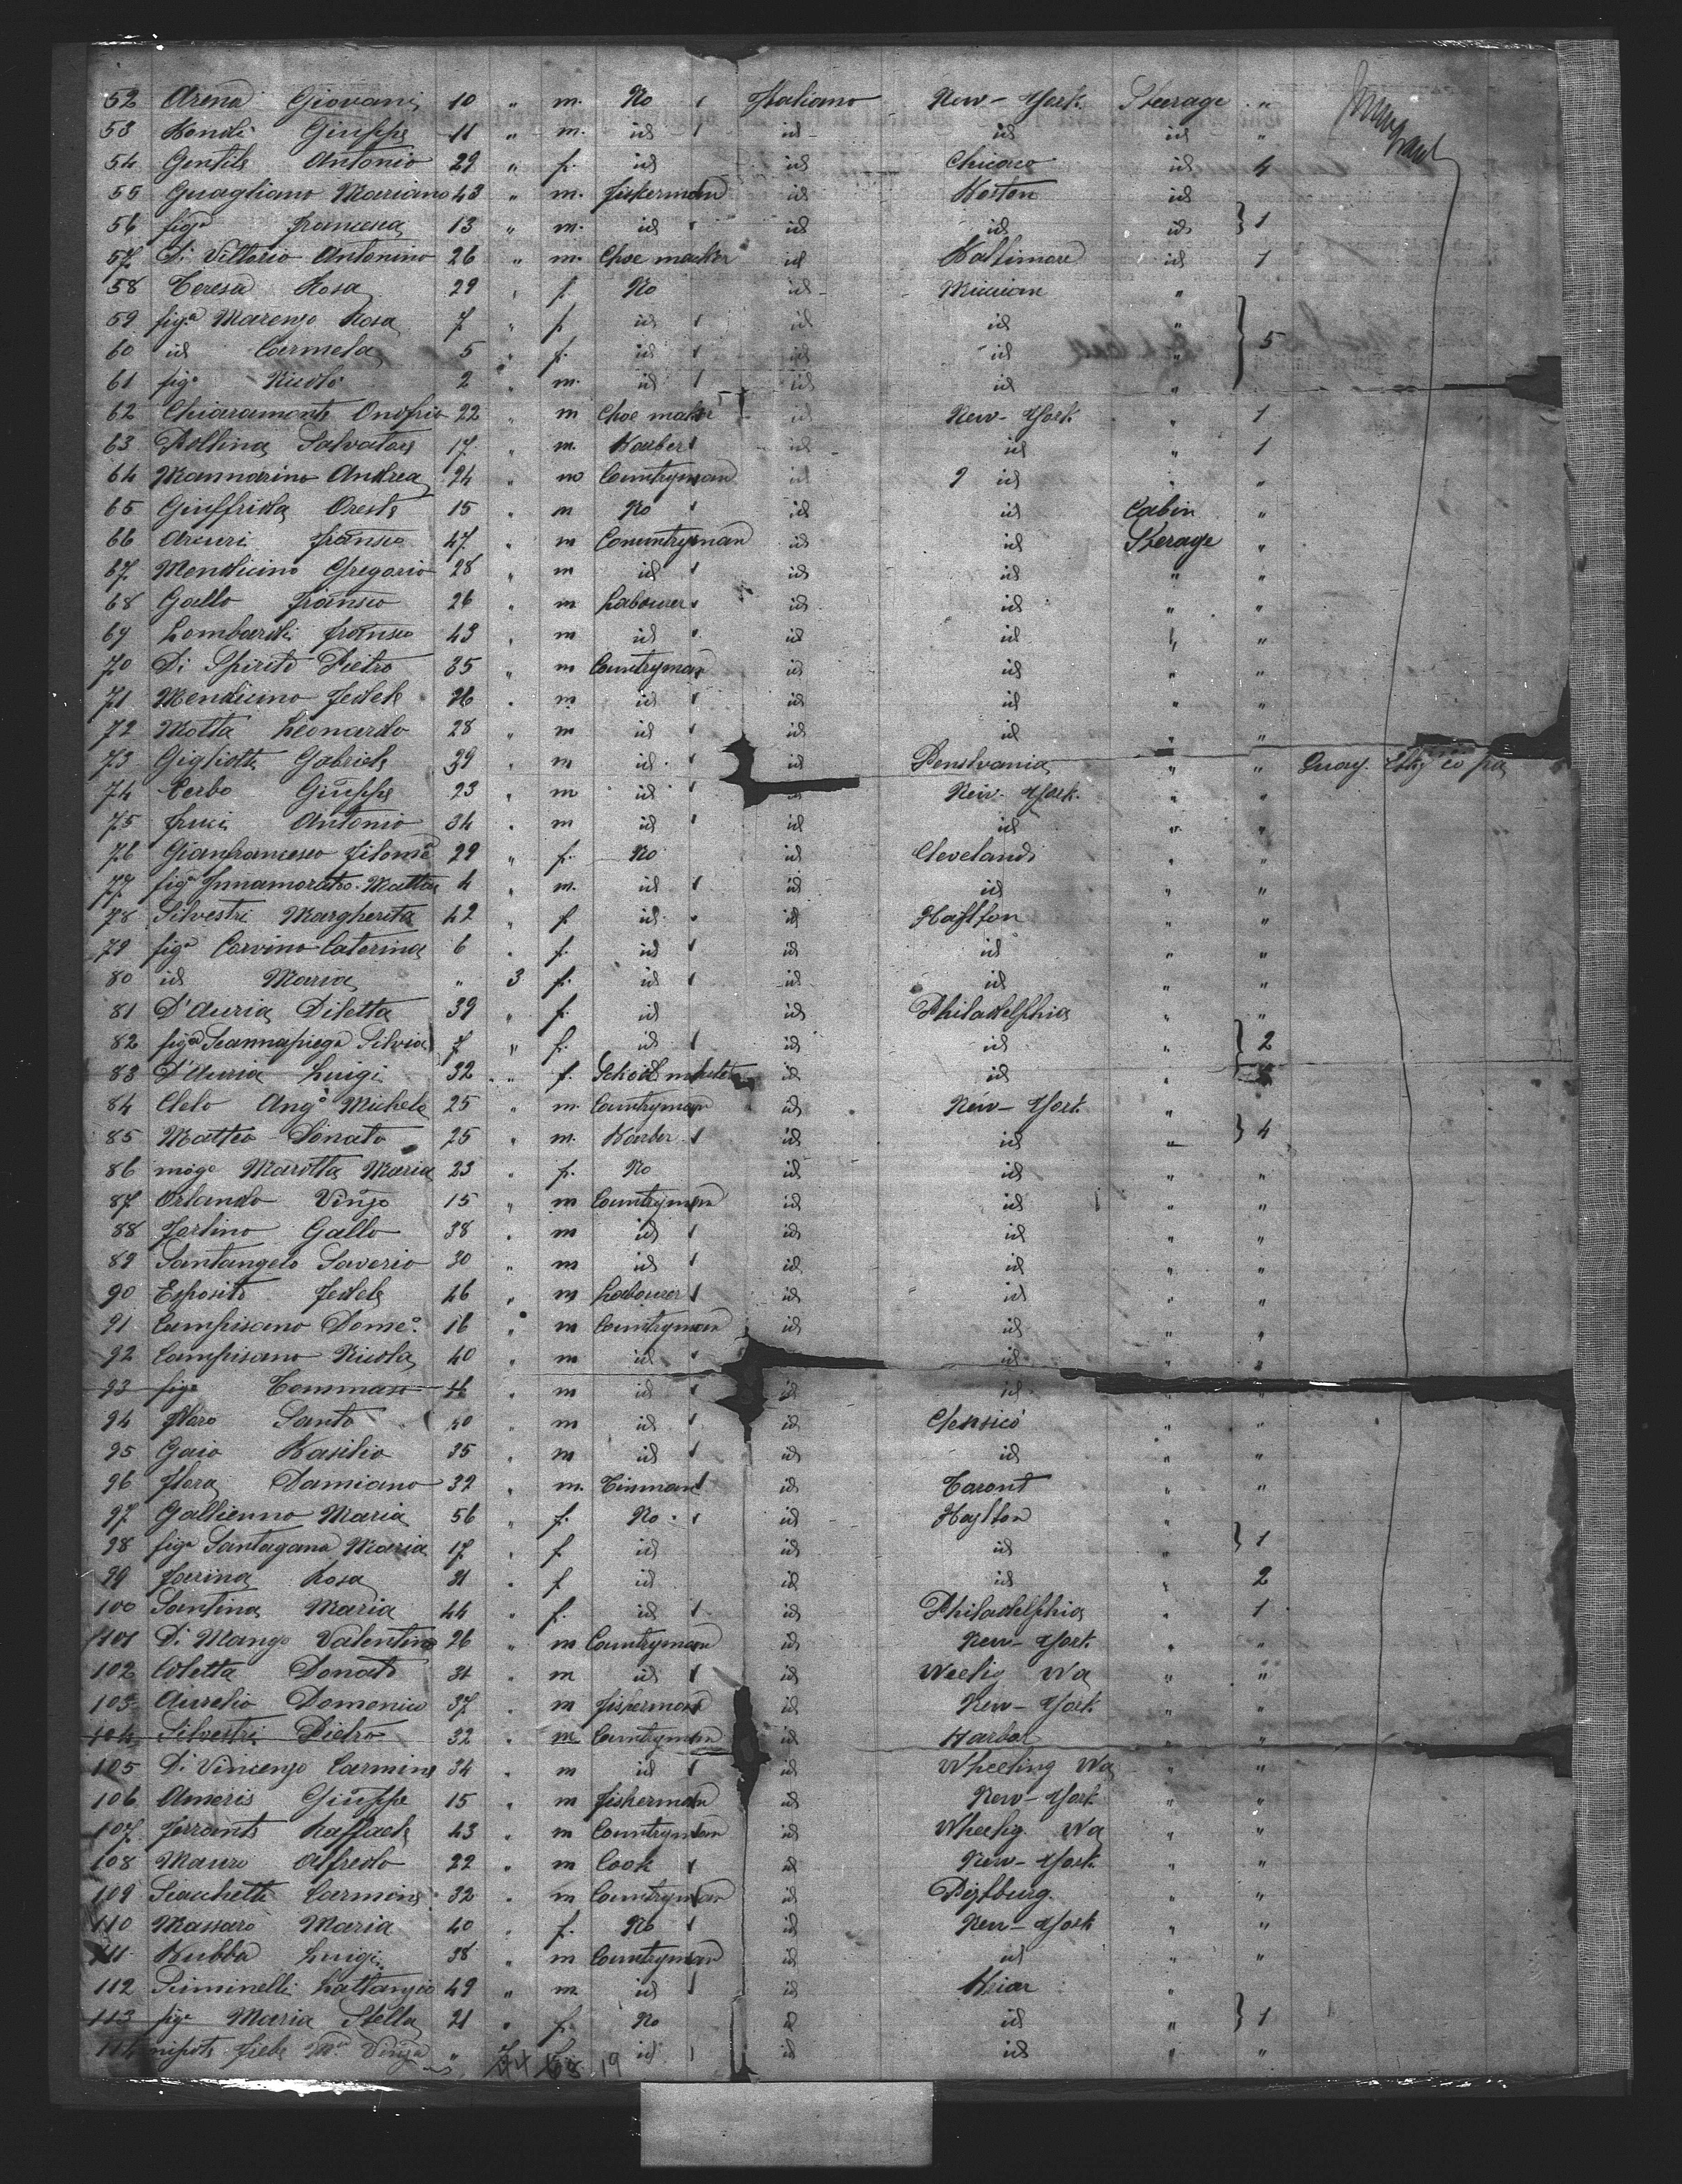 52 Arena Giovani 10 " m. No Italiano New-York Steerage "
53 Giuseppe 11 " m. id id id id "
54 Gentile Antonio 29 " f. id id Chicaco id 4
55 Guagliano Mariano 43 " m. fiskerman id Boston id
56 figa francesca 13 " m. id id id id } 1
57 Di Vittorio Antonino 26 " m. Choe macker id Baltimore id 1
58 Teresa Rosa 29 " f. No id "
59 figa Marenzo Rosa 7 " f id id id "
60 id Carmela 5 " f. id id id " } 5
61 figo Nicolo 2 " m. id id id "
62 Chiaramonte Onofrio 22 " m Choe maker id New-York " 1
63 Pollina Salvatore 17 " m. Barber id id " 1
64 Mannarino Andrea 24 " m Countryman id id " "
65 Giuffrida Oreste 15 " m No id id Cabin "
66 Arcuri 47 " m Conuntryman id id Sterage "
67 Mendicino Gregorio 28 " m id id id " "
68 Gallo 26 " m Labourer id id " "
69 Lombardi 43 " m id id id " "
70 Di Spirito Pietro 35 " m Countryman id id " "
71 Mendicino Fedele 26 " m id id id " "
72 Motta Leonardo 28 " m id id id " "
73 Gigliotti Gabriele 39 " m id id Penslvania " "
74 Cerbo Giuseppe 23 " m id id New-York " "
75 Antonio 34 " m id id id " "
76 Gianfrancesco Filome 29 " f. No id Cleveland " "
77 figo Innamorato Mattia 4 " m. id id id " "
78 Silvestri Margherita 42 " f id id " "
79 figa Corvino Caterina 6 " f. id id id " "
80 id Maria " 3 f. id id id " "
81 D'Auria Diletta 39 " f. id id Philadelphia " "
82 figa Scannapiego Silvia 7 " f. id id id " } 2
83 D'Auria Luigi 32 " f. id id "
84 Clelo Ango Michele 25 " m. Countryman id New-York "
85 Matteo Donato 25 " m. Barber id id " } 4
86 moge Marotta Maria 23 " f. No id id " "
87 Orlando Vinzo 15 " m Countryman id id " "
88 Fortino Gallo 38 " m id id id " "
89 Santangelo Saverio 30 " m id id id " "
90 Esposito Fedele 46 " m Labourer id id " "
91 Campisano Domeo. 16 " m Countryman id id " "
92 Campisano Nicola 40 " m id id id " "
93 figo Tommaso " m id id id " "
94 Santo 50 " m id id " "
95 Gaio Basilio 35 " m id id id " "
96 Flora Damiano 32 " m. Tinman id Toront " "
97 Gallienno Maria 56 " f. No id Hazlton "
98 figa Santagana Maria 17 " f id id id " } 1
99 Farina Rosa " f id id id " 2
100 Santina Maria 44 " f. id id Philadelphia " 1
101 Di Mango Valentino 26 " m Countryman id New-York " "
102 Coletta Donato 34 " m id id Weelig Wa " "
103 Aurelio Domenico 37 " m fisherman id New-York " "
104 Silvestri Pietro 32 " m Countryman id Harbor " "
105 Di Vincenzo Carmine 34 " m id id Wheeling Wa " "
106 Ameris Giuseppe 15 " m fisherman id New-York " "
107 Ferrante Raffaele 43 " m Countryman id Wheelig Wa " "
108 Mauro Alfredo 22 " m Cook id New-York " "
109 Sciacchetti Carmine 32 " m Countryman id " "
110 Massaro Maria 40 " f. No id New-York " "
111 Bubba Luigi 38 " m Countryman id id " "
112 Siminelli Lattanzio 49 " m id id "
113 figa Maria Stella 21 " f. No id id " } 1
114 nipote " id id id " "
44 19